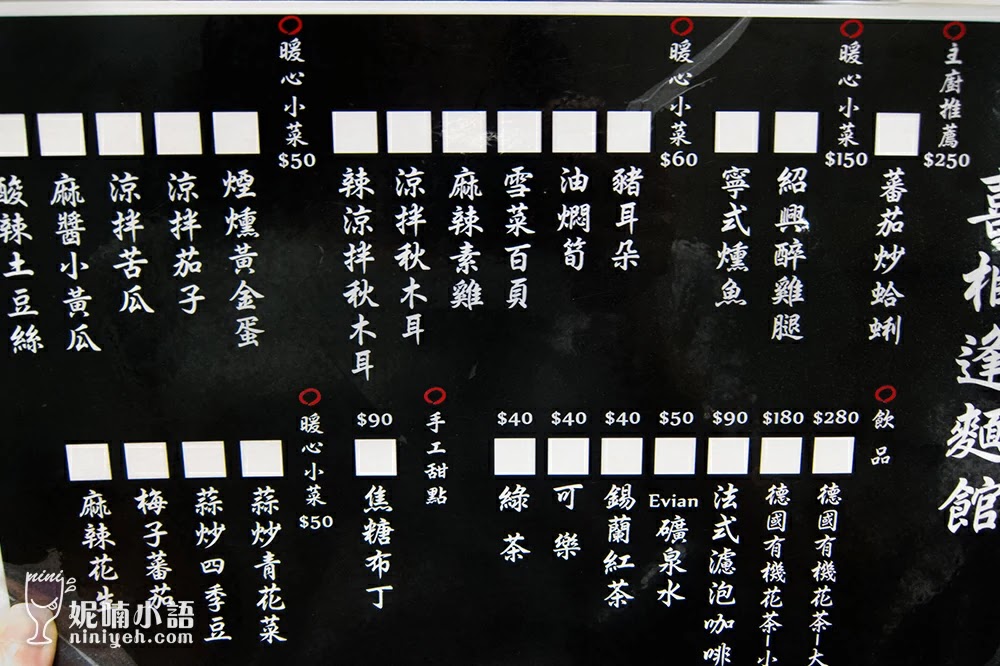 喜相逢麵館
主廚推薦
$250
蕃茄炒蛤蜊
暖心小菜
$150
紹興醉雞腿
寧式燻魚
暖心小菜
$60
豬耳朵
油燜筍
雪菜百頁
麻辣素雞
涼拌秋木耳
辣涼拌秋木耳
暖心小菜
$50
煙燻黃金蛋
涼拌茄子
涼拌苦瓜
麻醬小黃瓜
酸辣土豆絲
飲品
$280
德國有機花茶-大
$180
德國有機花茶-小
$90
法式濾泡咖啡
$50
Evian礦泉水
$40
錫蘭紅茶
$40
可樂
$40
綠茶
手工甜點
$90
焦糖布丁
暖心小菜
$50
蒜炒青花菜
蒜炒四季豆
梅子蕃茄
麻辣花生
nini
妮喃小語
niniyeh.com